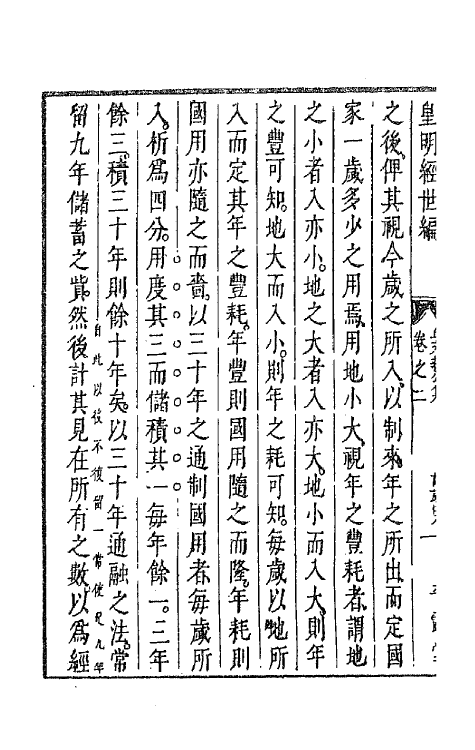 皇明經世編
卷之二
之後。俾其視今歲之所入。以制來年之所出。而定國
家一歲多少之用焉。用地小大。視年之豐耗者。謂地
之小者入亦小。地之大者入亦大。地小而入大。則年
之豐可知。地大而入小。則年之耗可知。每歲以地所
入而定其年之豐耗。年豐則國用隨之而隆。年耗則
國用亦隨之而嗇。以三十年之通制國用者。每歲所
入。析為四分。用度其三而儲積其一。每年餘一。三年
餘三。積三十年則餘十年矣。以三十年通融之法。常
留九年儲蓄之貲。然後計其見在所有之數。以為經
自此以後不復留一常使見九年